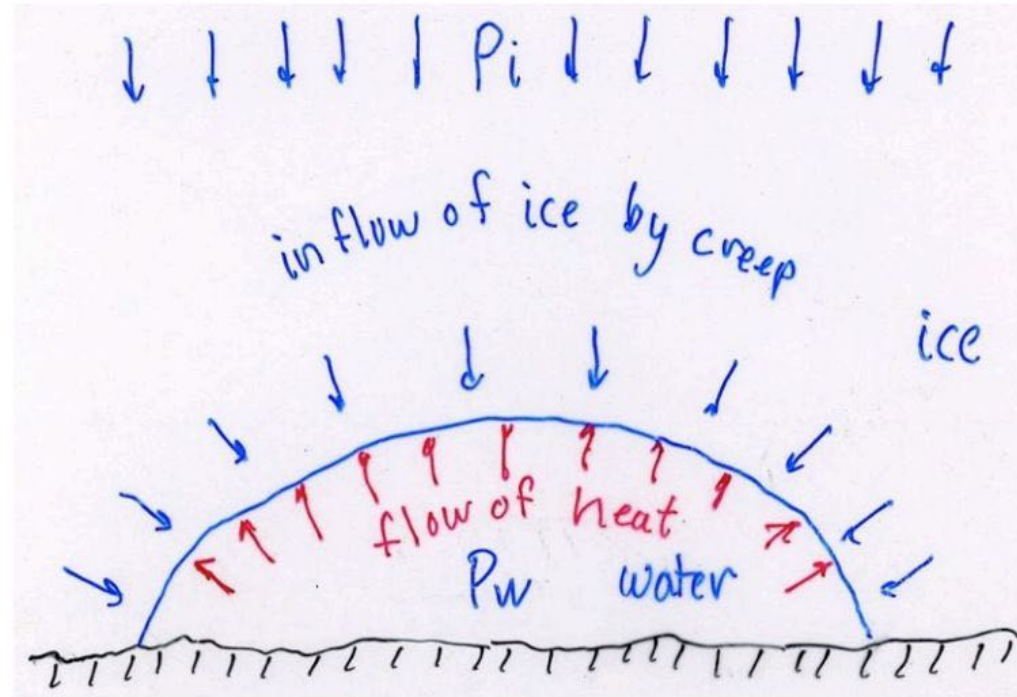 Pi
inflow of ice by creep
ice
flow of heat
Pw water